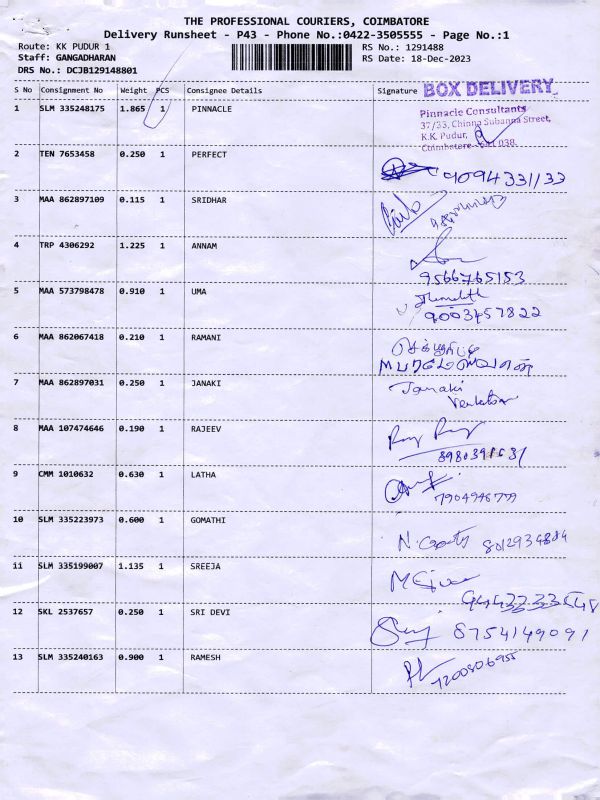 THE PROFESSIONAL COURIERS, COIMBATORE
Delivery Runsheet - P43 - Phone No.:0422-3505555 - Page No.:1
Route: KK PUDUR 1 RS No.: 1291488
Staff: GANGADHARAN RS Date: 18-Dec-2023
DRS No.: DCJB129148801
S No Consignment No Weight PCS Consignee Details Signature BOX DELIVERY
1 SLM 335248175 1.865 1 PINNACLE
Pinnacle Consultants
37/33, Chinna Subanna Street,
K.K. Pudur,
Coimbatore - 641 038.
2 TEN 7653458 0.250 1 PERFECT
9094331133
3 MAA 862897109 0.115 1 SRIDHAR
4 TRP 4306292 1.225 1 ANNAM
9566765153
5 MAA 573798478 0.910 1 UMA
9003457822
6 MAA 862067418 0.210 1 RAMANI
7 MAA 862897031 0.250 1 JANAKI Janaki
8 MAA 107474646 0.190 1 RAJEEV
9 CMM 1010632 0.630 1 LATHA
10 SLM 335223973 0.600 1 GOMATHI
8012934884
11 SLM 335199007 1.135 1 SREEJA
12 SKL 2537657 0.250 1 SRI DEVI
8754149091
13 SLM 335240163 0.900 1 RAMESH